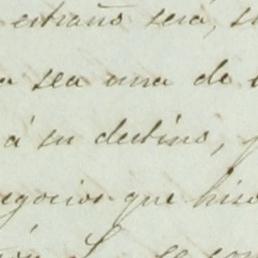 estraño será, su
sea una de
á su destino,
negocios que hiso